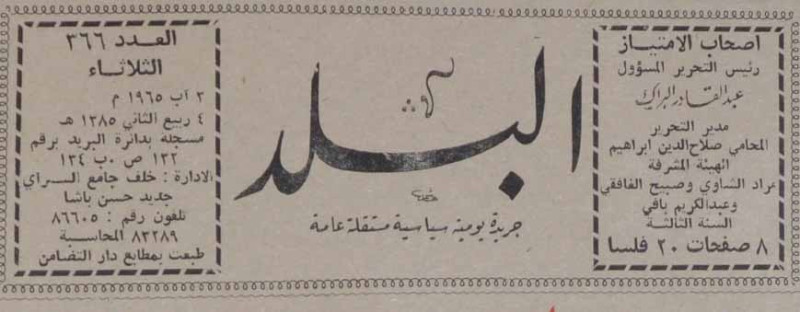 اصحاب الامتياز
رئيس التحرير المسؤول
عبدالقادر البراك
مدير التحرير
المحامي صلاح الدين ابراهيم
الهيئة المشرفة
عراد الشاوي وصبيح الغافقي
وعبدالكريم بافي
السنة الثالثة
٨ صفحات ٢٠ فلسا
البلد
جريدة يومية سياسية مستقلة عامة
العدد ٣٦٦
الثلاثاء
٣ آب ١٩٦٥ م
٤ ربيع الثاني ١٣٨٥ هـ
مسجلة بدائرة البريد برقم
١٣٢ ص ٠ب ١٣٤
الادارة : خلف جامع السراي
جديد حسن باشا
تلفون رقم : ٨٦٦٠٥
٨٣٢٨٩ المحاسبة
طبعت بمطابع دار التضامن